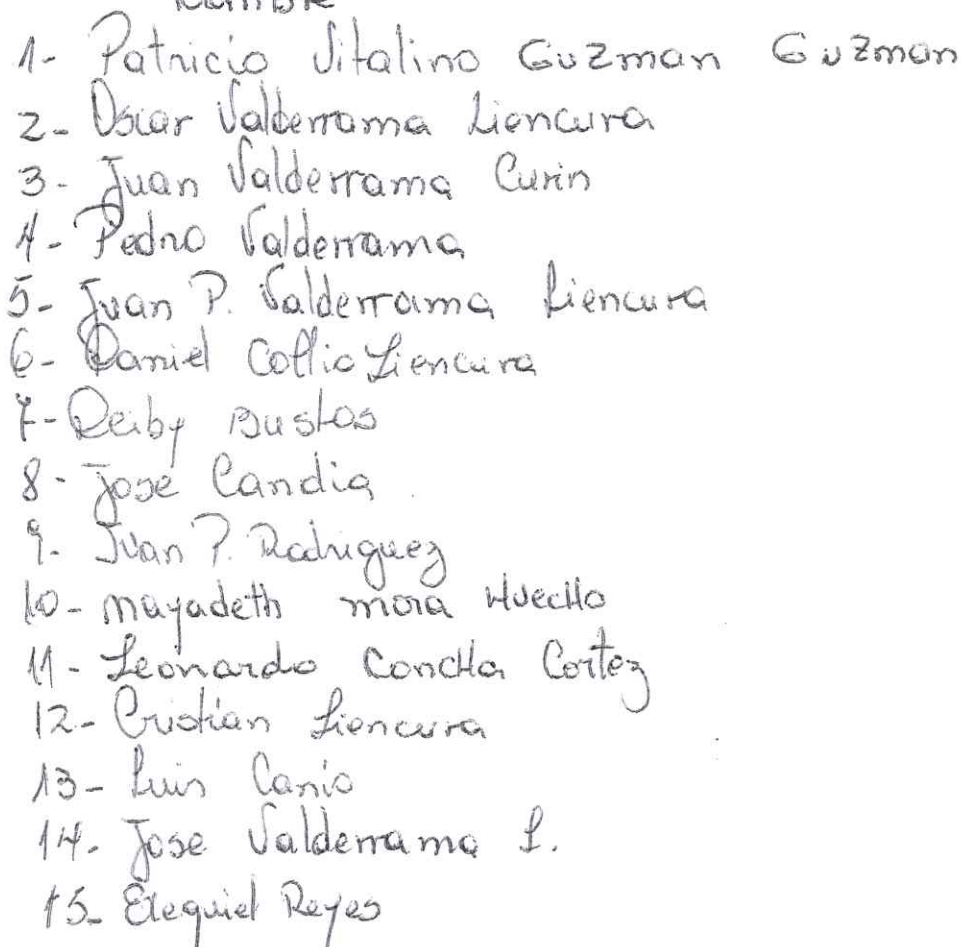 Nombre
1- Patricio Vitalino Guzman Guzman
2- Oscar Valderrama Liencura
3- Juan Valderrama Curin
4- Pedro Valderrama
5- Juan P. Valderrama Liencura
6- Daniel Collio Liencura
7- Deiby Bustos
8- José Candia
9- Juan P. Rodriguez
10- mayadeth mora Huecho
11- Leonardo Concha Cortez
12- Cristian Liencura
13- Luis Canio
14- Jose Valderrama L.
15- Elequiel Reyes